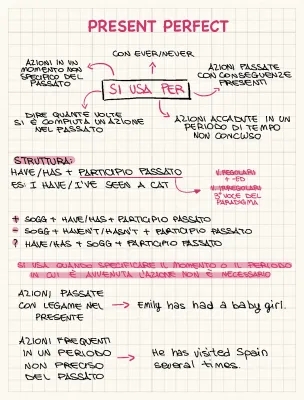 PRESENT PERFECT
CON EVER/NEVER
AZIONI IN UN
MOMENTO NON
SPECIFICO DEL
PASSATO
AZIONI PASSATE
CON CONSEGUENZE
PRESENTI
SI USA PER
DIRE QUANTE VOLTE
SI È COMPIUTA UN'AZIONE
NEL PASSATO
AZIONI ACCADUTE IN UN
PERIODO DI TEMPO
NON CONCLUSO
STRUTTURA:
HAVE/HAS + PARTICIPIO PASSATO
ES: I HAVE/I'VE SEEN A CAT
V. REGOLARI
+ -ED
V. IRREGOLARI
3ª VOCE DEL
PARADIGMA
+ SOGG + HAVE/HAS + PARTICIPIO PASSATO
- SOGG + HAVEN'T/HASN'T + PARTICIPIO PASSATO
? HAVE/HAS + SOGG + PARTICIPIO PASSATO
SI USA QUANDO SPECIFICARE IL MOMENTO O IL PERIODO
IN CUI È AVVENUTA L'AZIONE NON È NECESSARIO
AZIONI PASSATE
CON LEGAME NEL
PRESENTE
Emily has had a baby girl.
AZIONI FREQUENTI
IN UN PERIODO
NON PRECISO
DEL PASSATO
He has visited Spain
several times.